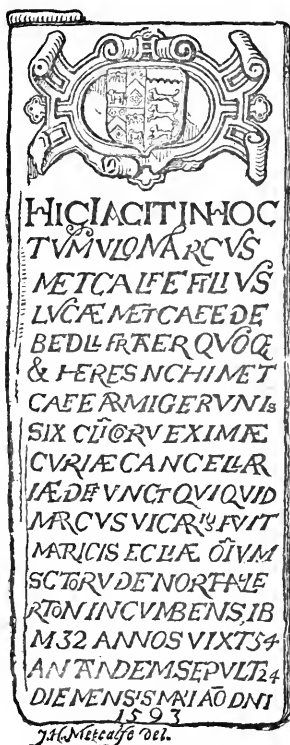 HIC IACIT IN HOC
TVMVLO MARCVS
METCALFE FILIVS
LVCÆ METCAEE DE
BEDLL FRATER QVOQE
& HERES NCHI MET
CAFE ARMIGER VNIs
SIX CLĪCORV EXIMÆ
CVRIÆ CANCELLAR
IÆ DEFVNCT QVI QVID
MARCVS VICARIꝰ FVIT
MATRICIS ECLIÆ OĪVM
SCTORV DE NORTHALE
RTON INCVMBENS, IB
M 32 ANNOS VIXT 54
AN TANDEM SEPVLT 24
DIE MENSIS MAI AŌ DNI
1593
J.H. Metcalfe del.